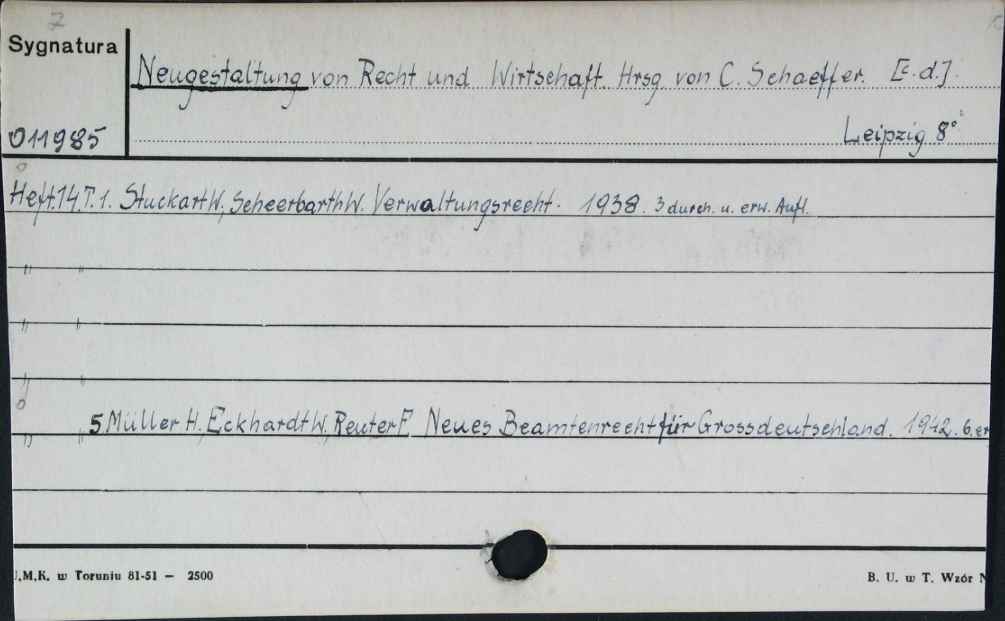 7
Sygnatura
Neugestaltung von Recht und Wirtschaft. Hrsg. von C. Schaeffer. [c.d.].
011985
Leipzig 8°
Heft.14.T.1. Stuckart W., Scheerbarth W. Verwaltungsrecht. 1938. 3 durch. u. erw. Aufl.
" "
" "
" "
" " 5 Müller H., Eckhardt W., Reuter F. Neues Beamtenrecht für Grossdeutschland. 1942. 6. er
U.M.K. w Toruniu 81-51 — 2500
B. U. w T. Wzór N